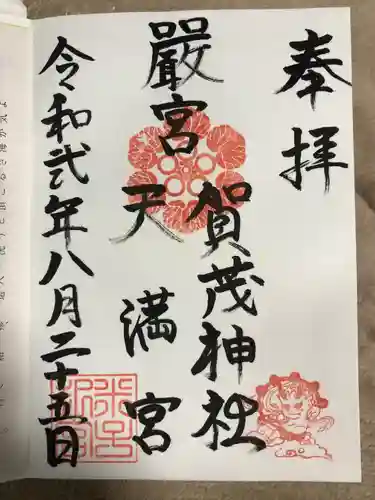 奉拝
賀茂神社
嚴宮
天満宮
令和弐年八月二十五日